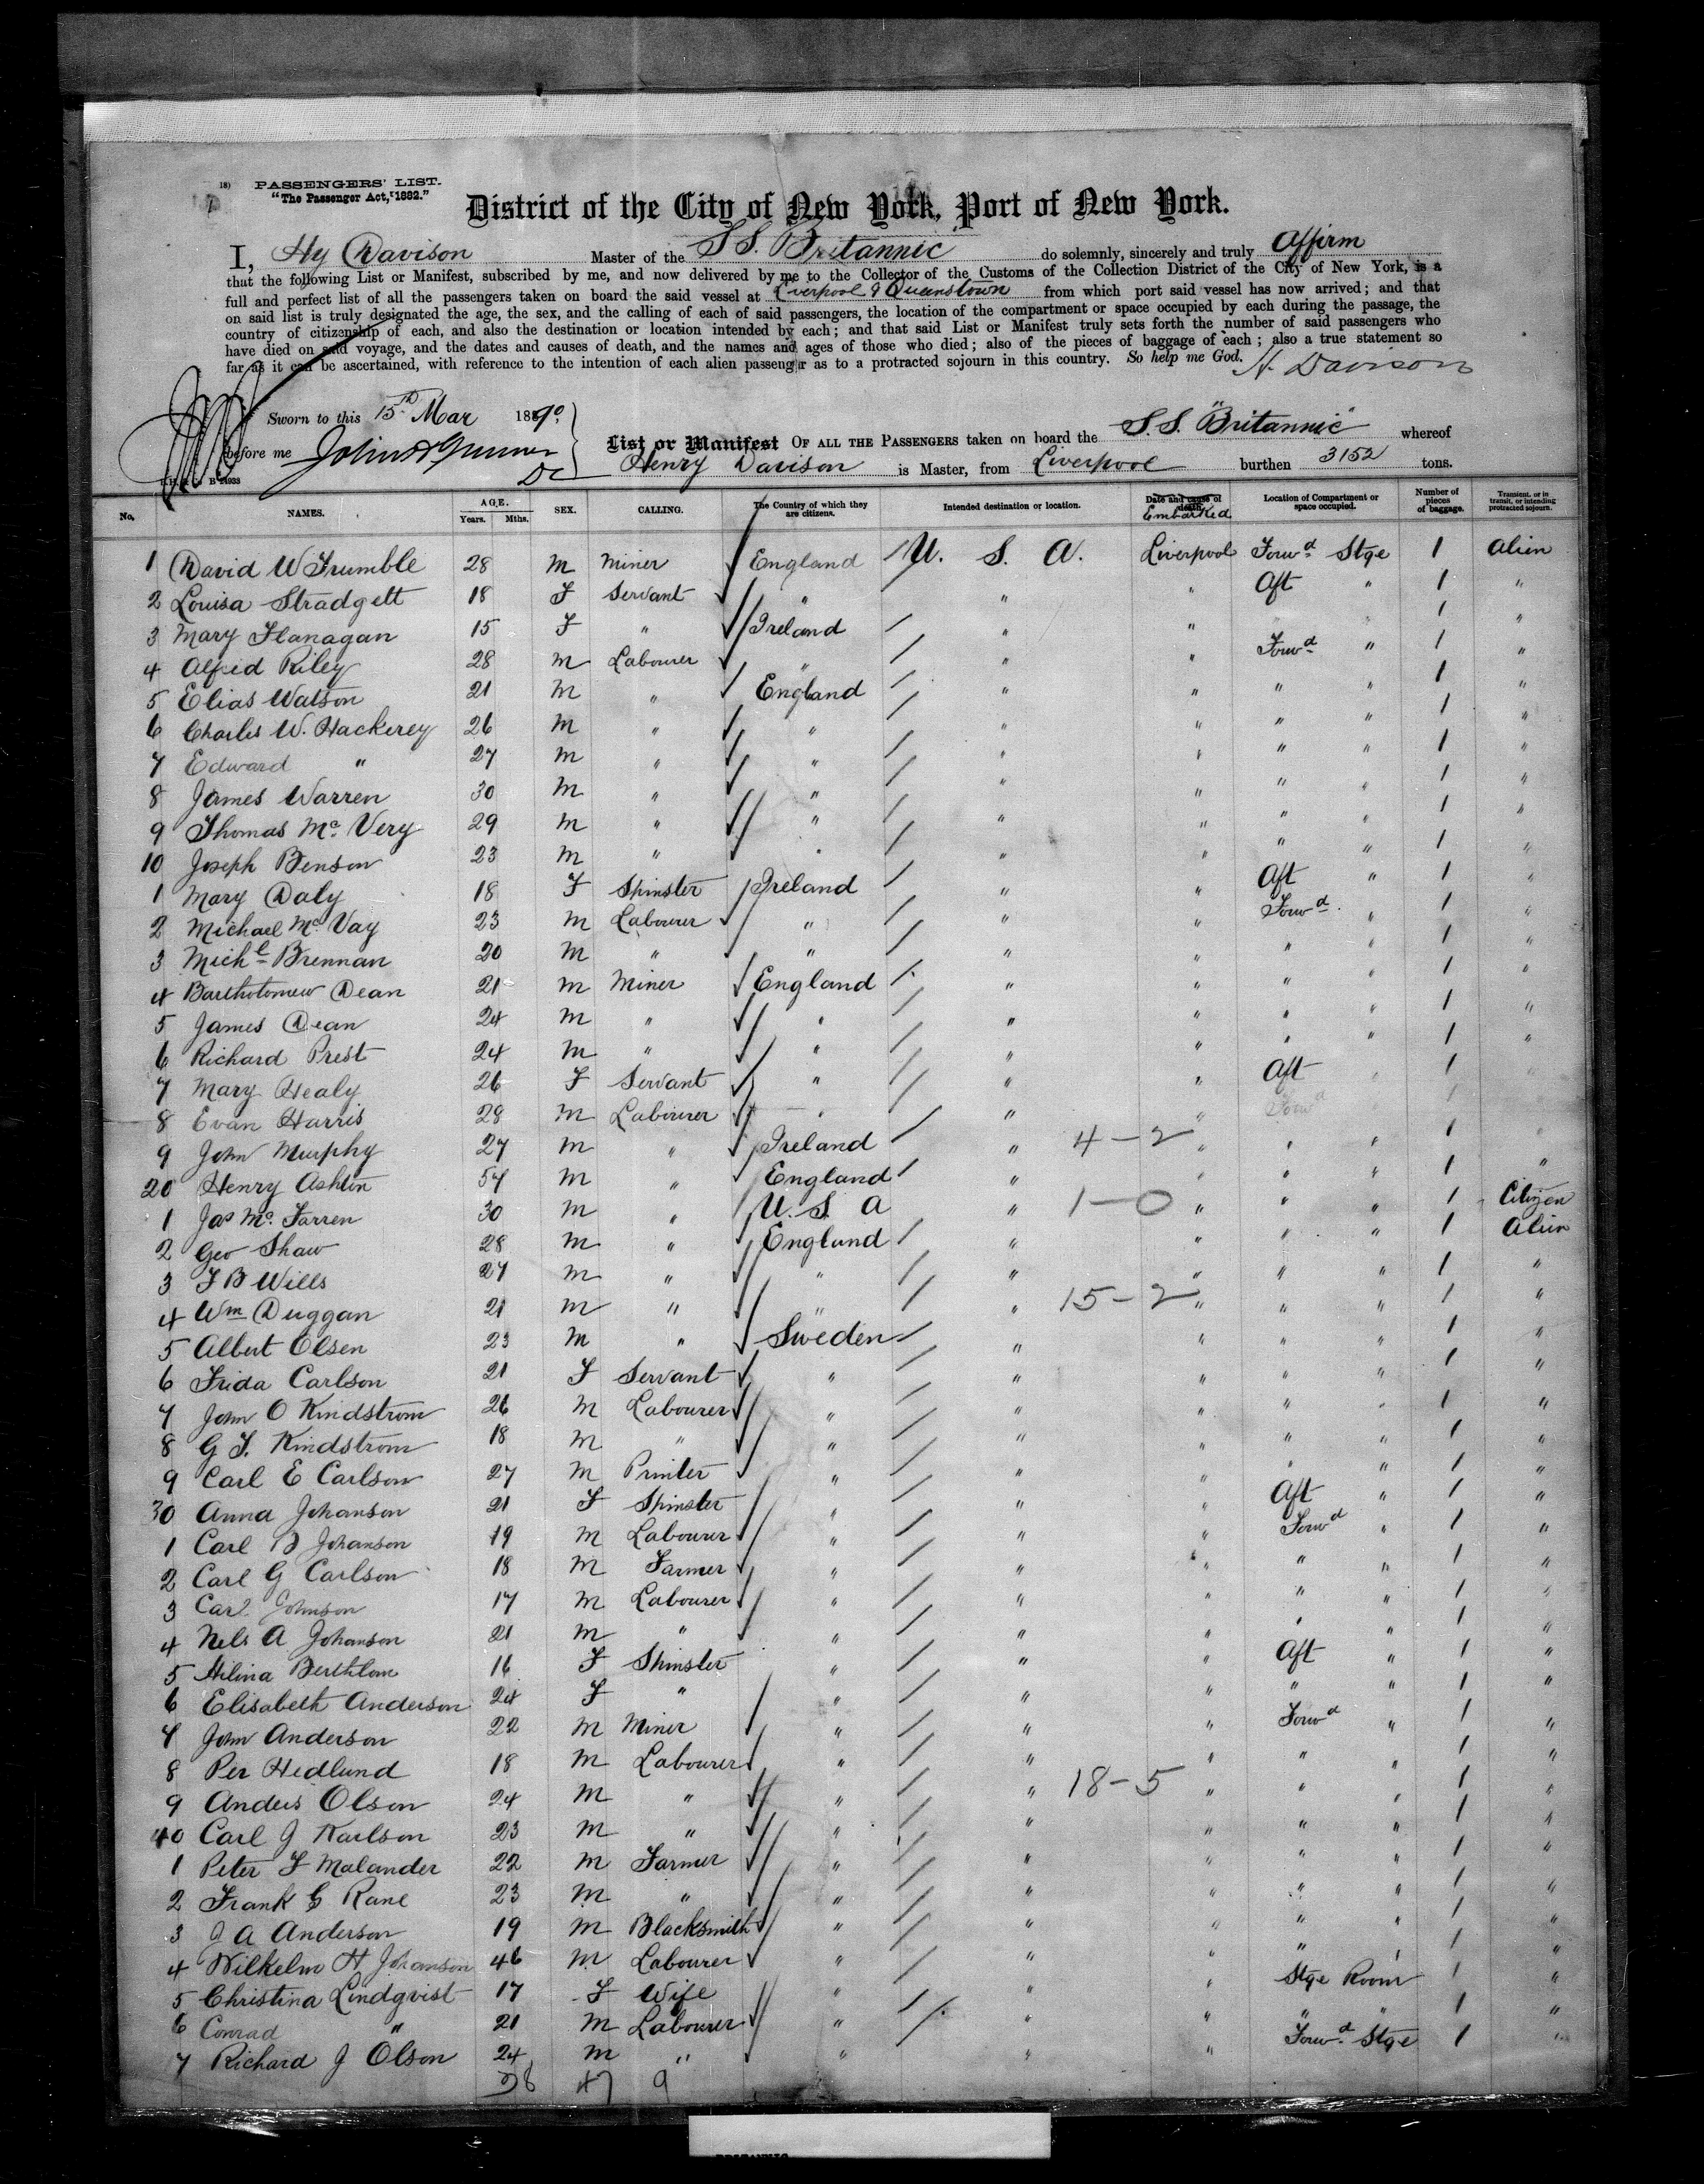 PASSENGERS' LIST.
"The Passenger Act, 1882."
District of the City of New York, Port of New York.
I, Hy Davison Master of the S S. Britannic do solemnly, sincerely and truly Affirm
that the following List or Manifest, subscribed by me, and now delivered by me to the Collector of the Customs of the Collection District of the City of New York, is a
full and perfect list of all the passengers taken on board the said vessel at Liverpool & Queenstown from which port said vessel has now arrived; and that
on said list is truly designated the age, the sex, and the calling of each of said passengers, the location of the compartment or space occupied by each during the passage, the
country of citizenship of each, and also the destination or location intended by each; and that said List or Manifest truly sets forth the number of said passengers who
have died on said voyage, and the dates and causes of death, and the names and ages of those who died; also of the pieces of baggage of each; also a true statement so
far as it can be ascertained, with reference to the intention of each alien passenger as to a protracted sojourn in this country. So help me God. H. Davison
Sworn to this 15th Mar 1890
before me
List or Manifest OF ALL THE PASSENGERS taken on board the S.S. "Britannic" whereof
Henry Davison is Master, from Liverpool burthen 3152 tons.
No. NAMES. AGE. Years. Mths. SEX. CALLING. The Country of which they are citizens. Intended destination or location. Date and cause of death. Embarked Location of Compartment or space occupied. Number of pieces of baggage. Transient, or in transit, or intending protracted sojourn.
1 David W Trumble 28 m Miner England U. S. A. Liverpool Forwd Stge 1 Alien
2 Louisa Stradgett 18 F Servant " " " Aft " 1 "
3 Mary Flanagan 15 F " Ireland " " " 1 "
4 Alfred Riley 28 m Labourer " " " Forwd " 1 "
5 Elias Watson 21 m " England " " " " 1 "
6 Charles W. Hackerey 26 m " " " " " " 1 "
7 Edward " 27 m " " " " " " 1 "
8 James Warren 30 m " " " " " " 1 "
9 Thomas Mc Very 29 m " " " " " " 1 "
10 Joseph Benson 23 m " " " " " " 1 "
1 Mary Daly 18 F Spinster Ireland " " Aft " 1 "
2 Michael Mc Vay 23 m Labourer " " " Forwd " 1 "
3 Michl Brennan 20 m " " " " " " 1 "
4 Bartholomew Dean 21 m Miner England " " " " 1 "
5 James Dean 24 m " " " " " " 1 "
6 Richard Prest 24 m " " " " " " 1 "
7 Mary Healy 26 F Servant " " " Aft " 1 "
8 Evan Harris 28 m Labourer " " " Forwd 1 "
9 John Murphy 27 m " Ireland " 4-2 " " " 1 "
20 Henry Ashton 54 m " England " " " " 1 "
1 Jas Mc Farren 30 m " U. S. A " 1-0 " " " 1 Citizen
2 Geo Shaw 28 m " England " " " " 1 Alien
3 F B Wills 27 m " " " " " " 1 "
4 Wm Duggan 21 m " " " 15-2 " " " 1 "
5 Albert Olsen 23 m " Sweden " " " " 1 "
6 Frida Carlson 21 F Servant " " " " " 1 "
7 John O Kindstrom 26 m Labourer " " " " " 1 "
8 G F. Kindstrom 18 m " " " " " " 1 "
9 Carl E Carlson 27 m Printer " " " " " 1 "
30 Anna Johanson 21 F Spinster " " " Aft " 1 "
1 Carl B Johanson 19 m Labourer " " " Forwd " 1 "
2 Carl G Carlson 18 m Farmer " " " " " 1 "
3 Carl Johnson 17 m Labourer " " " " " 1 "
4 Nels A Johanson 21 m " " " " " " 1 "
5 Hilina 16 F Spinster " " " Aft " 1 "
6 Elisabeth Anderson 24 F " " " " " " 1 "
7 John Anderson 22 m Miner " " " Forwd " 1 "
8 Per Hedlund 18 m Labourer " " " " " 1 "
9 Anders Olson 24 m " " " 18-5 " " " 1 "
40 Carl J Karlson 23 m " " " " " " 1 "
1 Peter F Malander 22 m Farmer " " " " " 1 "
2 Frank G Rane 23 m " " " " " " 1 "
3 J A Anderson 19 m Blacksmith " " " " " 1 "
4 Wilhelm H Johanson 46 m Labourer " " " " " 1 "
5 Christina Lindqvist 17 F Wife " " " Stge Room 1 "
6 Conrad " 21 m Labourer " " " " " 1 "
7 Richard J Olson 24 m " " " " Forwd Stge 1 "
38 47 9